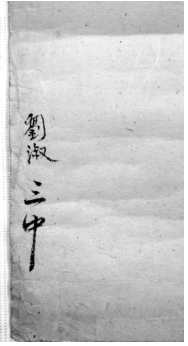 劉淑三中